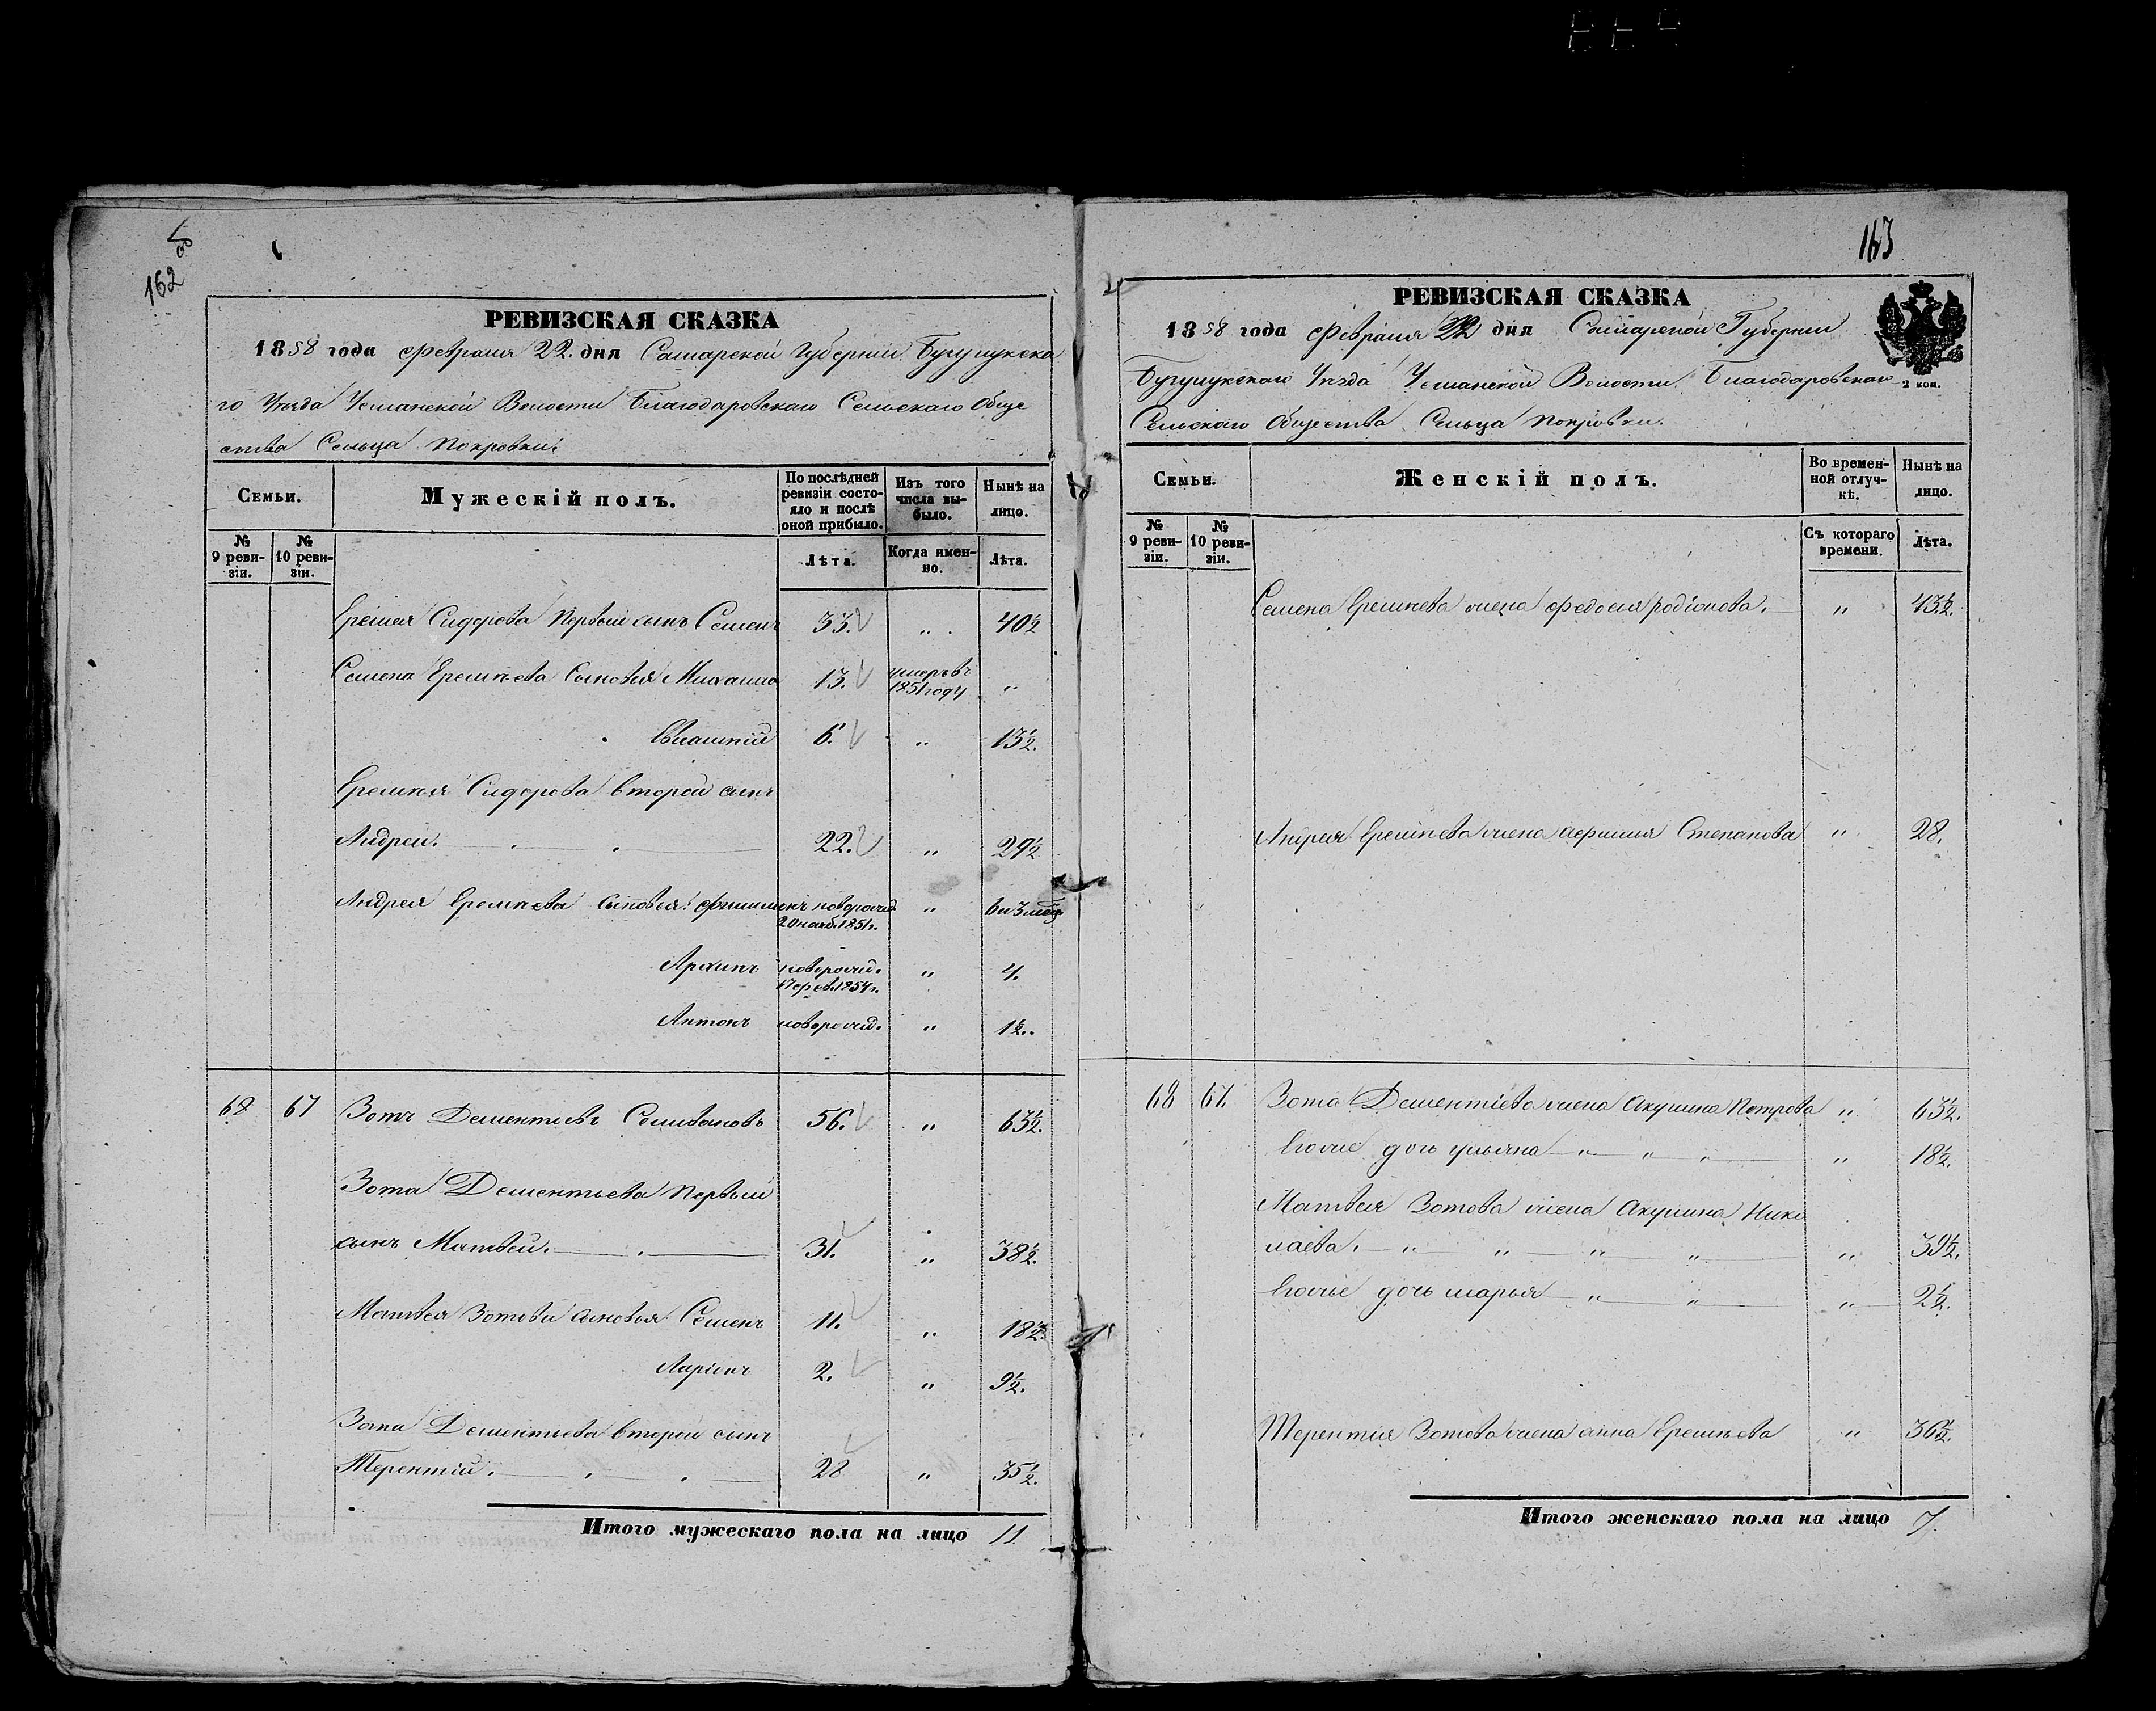 162
РЕВИЗСКАЯ СКАЗКА
1858 года февраля 22. дня Самарской Губернии Бугурусла
го Уезда Усманской Волости Благодаровскаго Сельскаго Обще
ства Сельца Покровки.
Семьи.
Мужескій полъ.
По послѣдней ревизіи состояло и послѣ оной прибыло.
Изъ того числа выбыло.
Нынѣ на лицо.
№ 9 ревизіи.
№ 10 ревизіи.
Лѣта.
Когда именно.
Лѣта.
Еремея Сидорова первый сынъ Семенъ 33. „ 40½
Семена Еремѣева сыновья Михаила 13. умеръ въ 1851 году „
6. „ 13½.
Еремея Сидорова второй сынъ
Андрей. 22. „ 29½
Андрея Еремѣева сыновья: новорожд. 1851г. „ 6 и 3 мес
Архипъ новорожд. 17 фев. 1854г. „ 4.
Антонъ новорожд. „ 1½.
68 67 Зотъ Дементьевъ Селивановъ 56. „ 63½.
Зота Дементьева первый
сынъ Матвей. 31. „ 38½.
Матвея Зотова сыновья Семенъ 11. „ 18½.
Ларіонъ 2. „ 9½.
Зота Дементьева второй сынъ
Терентій. 28 „ 35½.
Итого мужескаго пола на лицо 11.
163
РЕВИЗСКАЯ СКАЗКА
1858 года февраля 22 дня Самарской Губернии
Уезда Усманской Волости Благодаровскаго
2 коп.
Сельскаго Общества Сельца Покровки.
Семьи.
Женскій полъ.
Во временной отлучкѣ.
Нынѣ на лицо.
№ 9 ревизіи.
№ 10 ревизіи.
Съ котораго времени.
Лѣта.
Семена Еремѣева жена Федосия Родіонова. „ 43½.
Андрея Еремѣева жена Афимья Степанова „ 28.
68 67. Зота Дементіева жена Акулина Петрова „ 63½.
Егоже дочь ульяна „ „ „ „ 18½.
Матвея Зотова жена Акулина Нико
лаева. „ „ „ „ „ 39½.
Егоже дочь марья „ „ „ 2½.
Терентия Зотова жена анна Еремѣева „ 36½.
Итого женскаго пола на лицо 7.